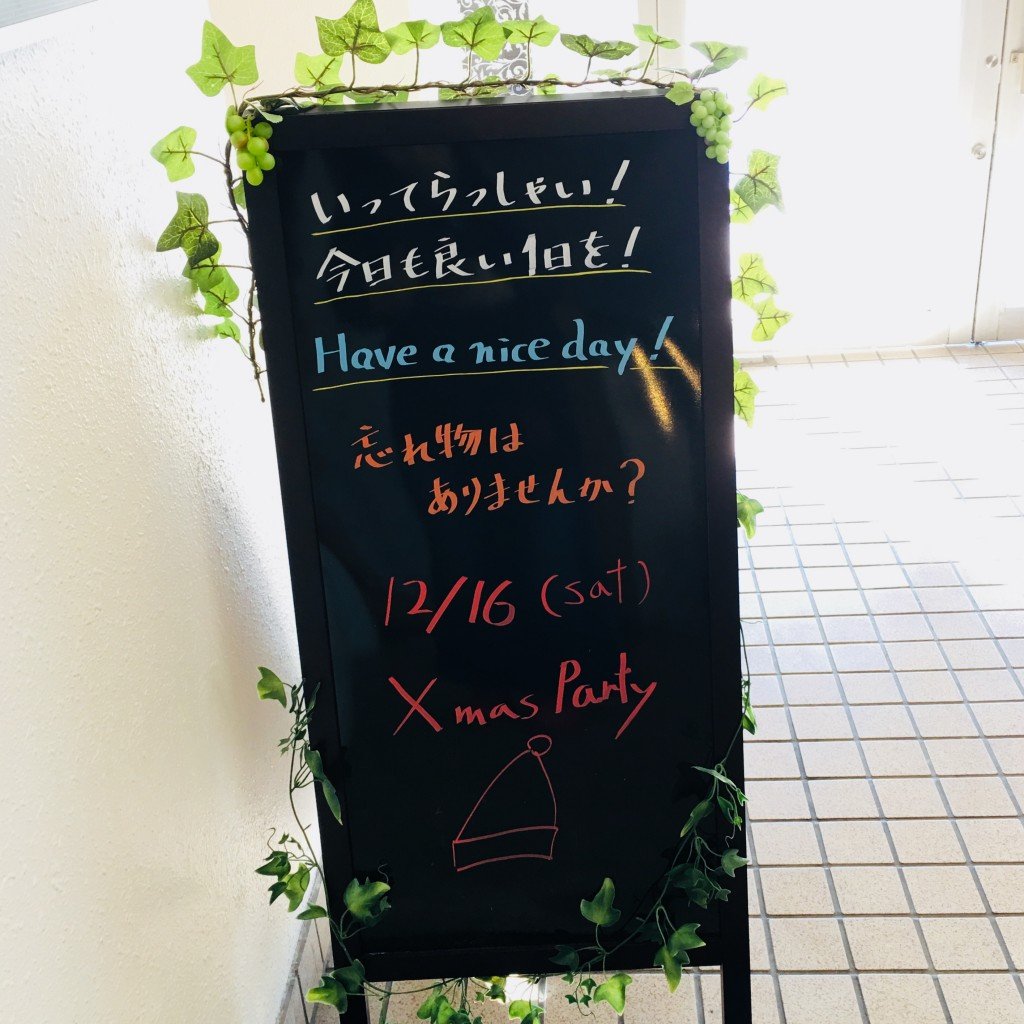 いってらっしゃい!
今日も良い1日を!
Have a nice day!
忘れ物は
ありませんか?
12/16 (sat)
Xmas Party